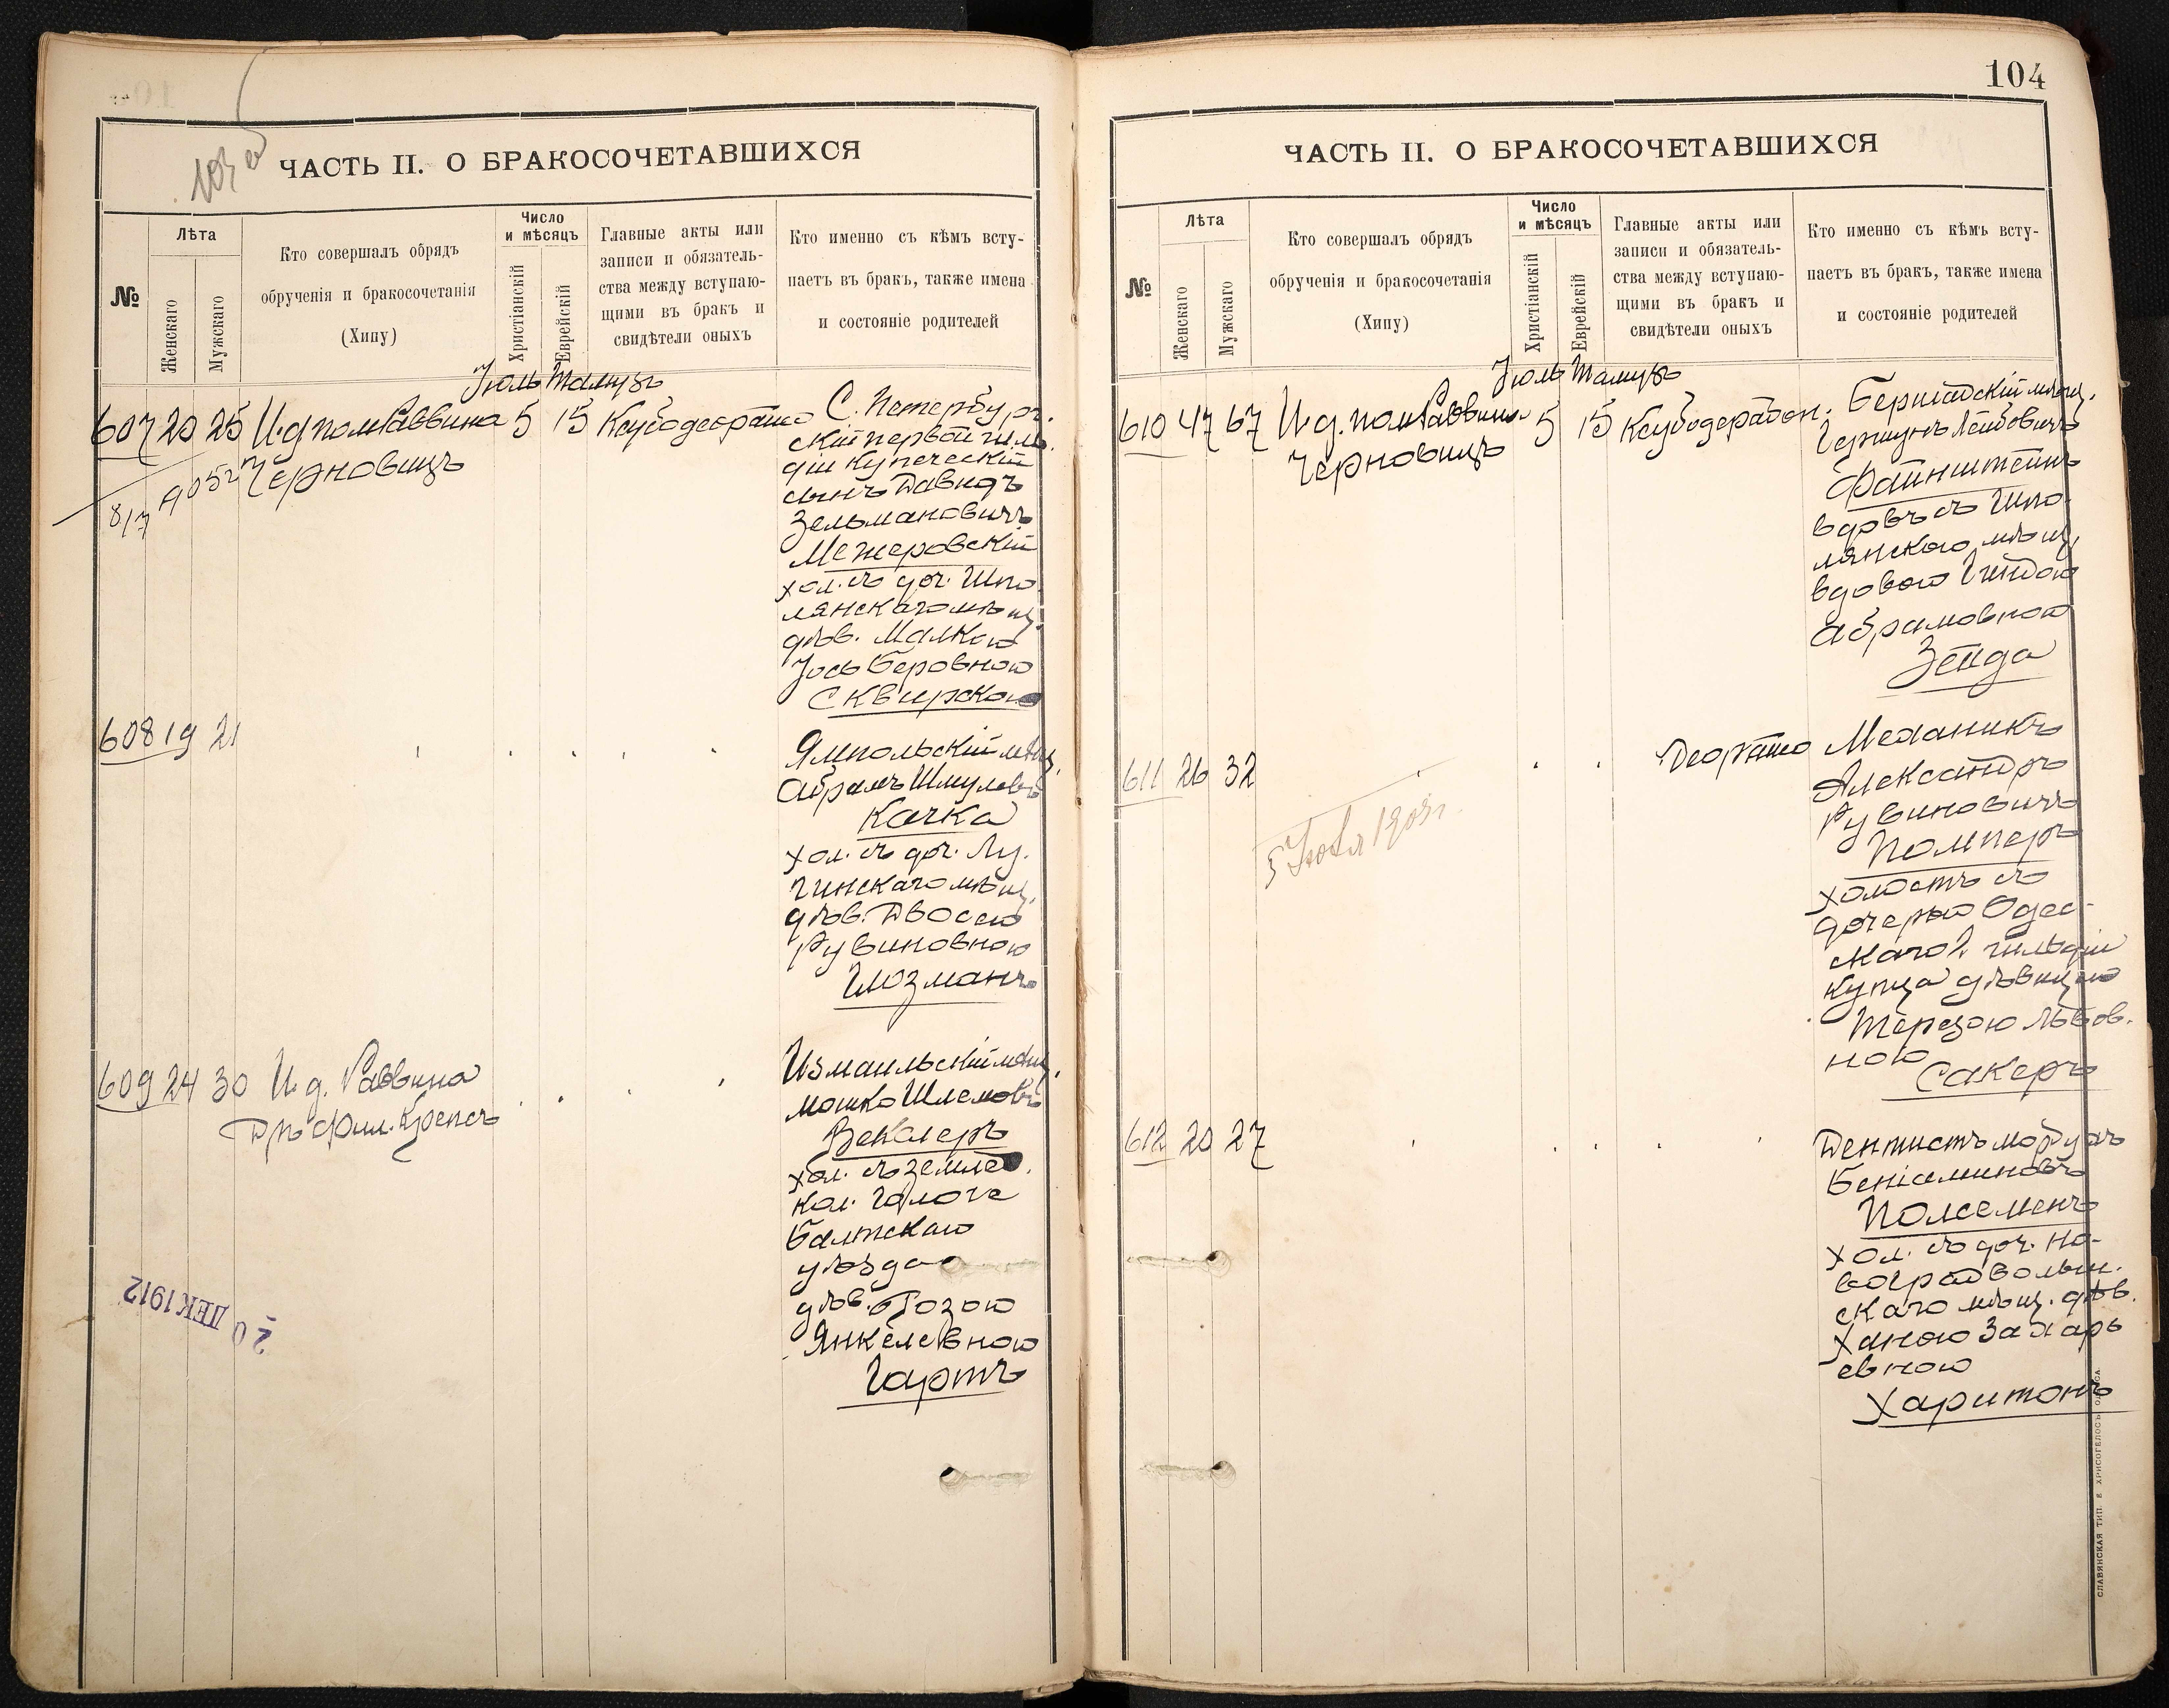 103 об
ЧАСТЬ II. О БРАКОСОЧЕТАВШИХСЯ
№
Лѣта
Женскаго
Мужскаго
Кто совершалъ обрядъ
обрученія и бракосочетанія
(Хипу)
Число
и мѣсяцъ
Христіанскій
Еврейскій
Главные акты или
записи и обязатель-
ства между вступаю-
щими въ бракъ и
свидѣтели оныхъ
Кто именно съ кѣмъ всту-
паетъ въ бракъ, также имена
и состояніе родителей
Іюль Тамузъ
607 20 25 И.д. пом Раввина 5 15
Черновицъ
8/7
С. Петербург.
скій первой гиль
діи купеческій
сынъ Давидъ
Зельмановичъ
Межеровскій
хол. съ доч. Шпо
лянскаго мѣщ.
дѣв. Малкою
Іось Беровною
Сквирскою
608 19 21
Ямпольскій мѣщ.
Абрамъ Шмулев
Качка
хол. съ доч. Лу.
гинскаго мѣщ.
дѣв. Двосею
Рувиновною
Глозманъ
609 24 30 И.д. Раввина
Дръ Фил. Крепсъ
Измаильскій мѣщ.
Мошко Шлемов
Векслеръ
хол. съ землед.
кол. Голоче
Балтскаго
уѣзда
дѣв. Розою
Янкелевною
Гартъ
20 ДЕК 1912
104
ЧАСТЬ II. О БРАКОСОЧЕТАВШИХСЯ
№
Лѣта
Женскаго
Мужскаго
Кто совершалъ обрядъ
обрученія и бракосочетанія
(Хипу)
Число
и мѣсяцъ
Христіанскій
Еврейскій
Главные акты или
записи и обязатель-
ства между вступаю-
щими въ бракъ и
свидѣтели оныхъ
Кто именно съ кѣмъ всту-
паетъ въ бракъ, также имена
и состояніе родителей
Іюль Тамузъ
610 47 67 И.д. пом Раввина 5 15
Черновицъ
Бершадскій мѣщ.
Гершунъ Лейбовичъ
Файнштейнъ
вдовъ съ Шпо
лянскою мѣщ.
вдовою Гиндою
Абрамовною
Зейда
611 26 32
5 Іюля 1905 г.
Механикъ
Александръ
Рувиновичъ
Помперъ
холостъ съ
дочерью Одес-
скаго 2. гильдіи
купца дѣвицею
Терезою Львов.
ною
Сакеръ
612 20 27
Дентистъ Мордухъ
Беніаминовъ
Полсеменъ
хол. съ доч. Но-
воградволын.
скаго мѣщ. дѣв.
Ханою Захарь
евною
Харитонъ
СЛАВЯНСКАЯ ТИП. Е. ХРИСОГЕЛОСЪ, ОДЕССА